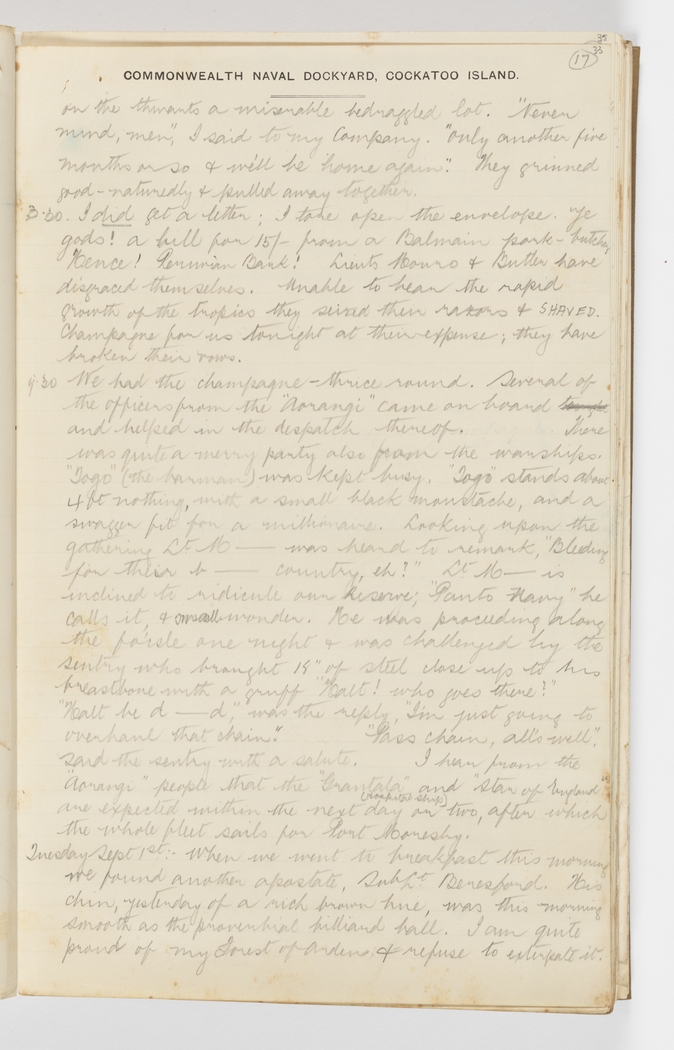 35
33
17
COMMONWEALTH NAVAL DOCKYARD, COCKATOO ISLAND.
on the thwarts a miserable bedraggled lot. "Never
mind, men", I said to my Company. "only another five
months or so & we'll be home again". They grinned
good-naturedly & pulled away together.
3.30. I did get a letter; I take open the envelope. Ye
gods! a bill for 15/- from a Balmain pork-butcher
Hence! Peruvian Bark! Lieuts Monro & Butler have
disgraced themselves. Unable to bear the rapid
growth of the tropics they seized their razors & SHAVED.
Champagne for us tonight at their expense; they have
broken their vows.
9.30 We had the champagne - thrice round. Several of
the officers from the "Aorangi" came on board
and helped in the despatch thereof. There
was quite a merry party also from the warships.
"Togo" (the barman) was kept busy. "Togo" stands about
4 ft nothing, with a small black moustache, and a
swagger fit for a millionaire. Looking upon the
gathering Lt. M—— was heard to remark, "Bleeding
for their b—— country, eh?" Lt. M—— is
inclined to ridicule our Reserve; "Panto Navy" he
calls it, & small wonder. He was proceeding along
the fo'csle one night & was challenged by the
sentry who brought 18" of steel close up to his
breastbone with a gruff "Halt! who goes there?"
"Halt be d——d," was the reply, "I'm just going to
overhaul that chain". "Pass chain, all's well",
said the sentry with a salute. I hear from the
"Aorangi" people that the "Grantala" and "Star of England"
(hospital ship)
are expected within the next day or two, after which
the whole fleet sails for Port Moresby.
Tuesday Sept 1st:- When we went to breakfast this morning
we found another apostate, Sub Lt Beresford. His
chin, yesterday of a rich brown hue, was this morning
smooth as the proverbial billiard ball. I am quite
proud of my Forest of Arden & refuse to exterpate it.